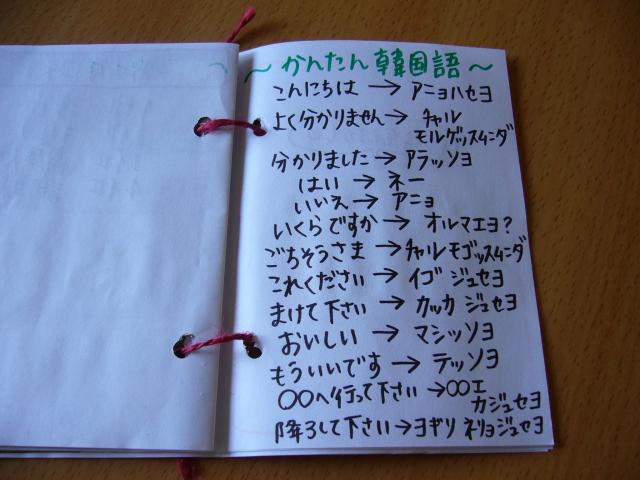 ～ かんたん 韓国語 ～
こんにちは → アニョハセヨ
よく分かりません → チャル
モルゲッスムニダ
分かりました → アラッソヨ
はい → ネー
いいえ → アニョ
いくらですか → オルマエヨ?
ごちそうさま → チャルモゴッスムニダ
これください → イゴ ジュセヨ
まけて下さい → カッカ ジュセヨ
おいしい → マシッソヨ
もういいです → テッソヨ
○○へ行って下さい → ○○エ
カジュセヨ
降ろして下さい → ヨギソ ネリョジュセヨ